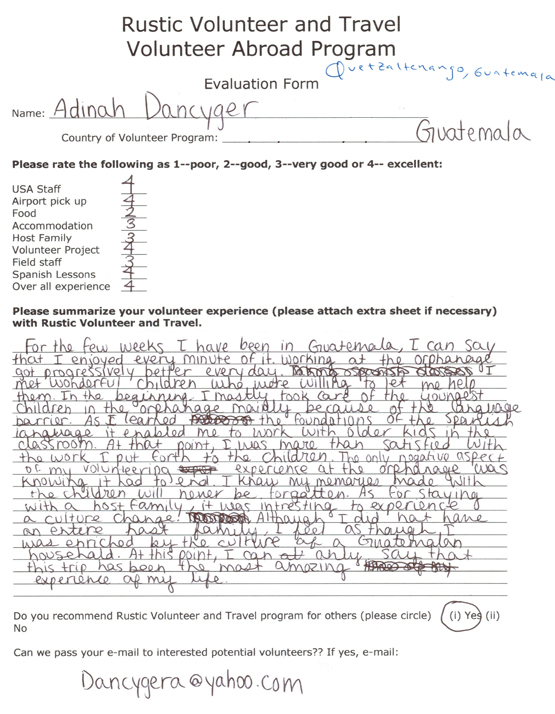 Rustic Volunteer and Travel
Volunteer Abroad Program
Quetzaltenango, Guatemala
Evaluation Form
Name: Adinah Dancyger
Country of Volunteer Program: Guatemala
Please rate the following as 1--poor, 2--good, 3--very good or 4-- excellent:
USA Staff 4
Airport pick up 4
Food 2
Accommodation 3
Host Family 3
Volunteer Project 4
Field staff 3
Spanish Lessons 4
Over all experience 4
Please summarize your volunteer experience (please attach extra sheet if necessary)
with Rustic Volunteer and Travel.
For the few weeks I have been in Guatemala, I can say
that I enjoyed every minute of it. Working at the orphanage
got progressively better everyday. I
met wonderful children who were willing to let me help
them. In the beginning, I mostly took care of the youngest
children in the orphanage mainly because of the language
barrier. As I learned the foundations of the Spanish
language it enabled me to work with older kids in the
classroom. At that point, I was more than satisfied with
the work I put forth to the children. The only negative aspect
of my volunteering experience at the orphanage was
knowing it had to end. I know my memories made with
the children will never be forgotten. As for staying
with a host family, it was intresting to experience
a culture change. Although I did not have
an entere host family, I feel as though I
was enriched by the culture of a Guatemalan
household. At this point, I can only say that
this trip has been the most amazing
experience of my life.
Do you recommend Rustic Volunteer and Travel program for others (please circle) (i) Yes (ii)
No
Can we pass your e-mail to interested potential volunteers?? If yes, e-mail:
Dancygera@yahoo.com